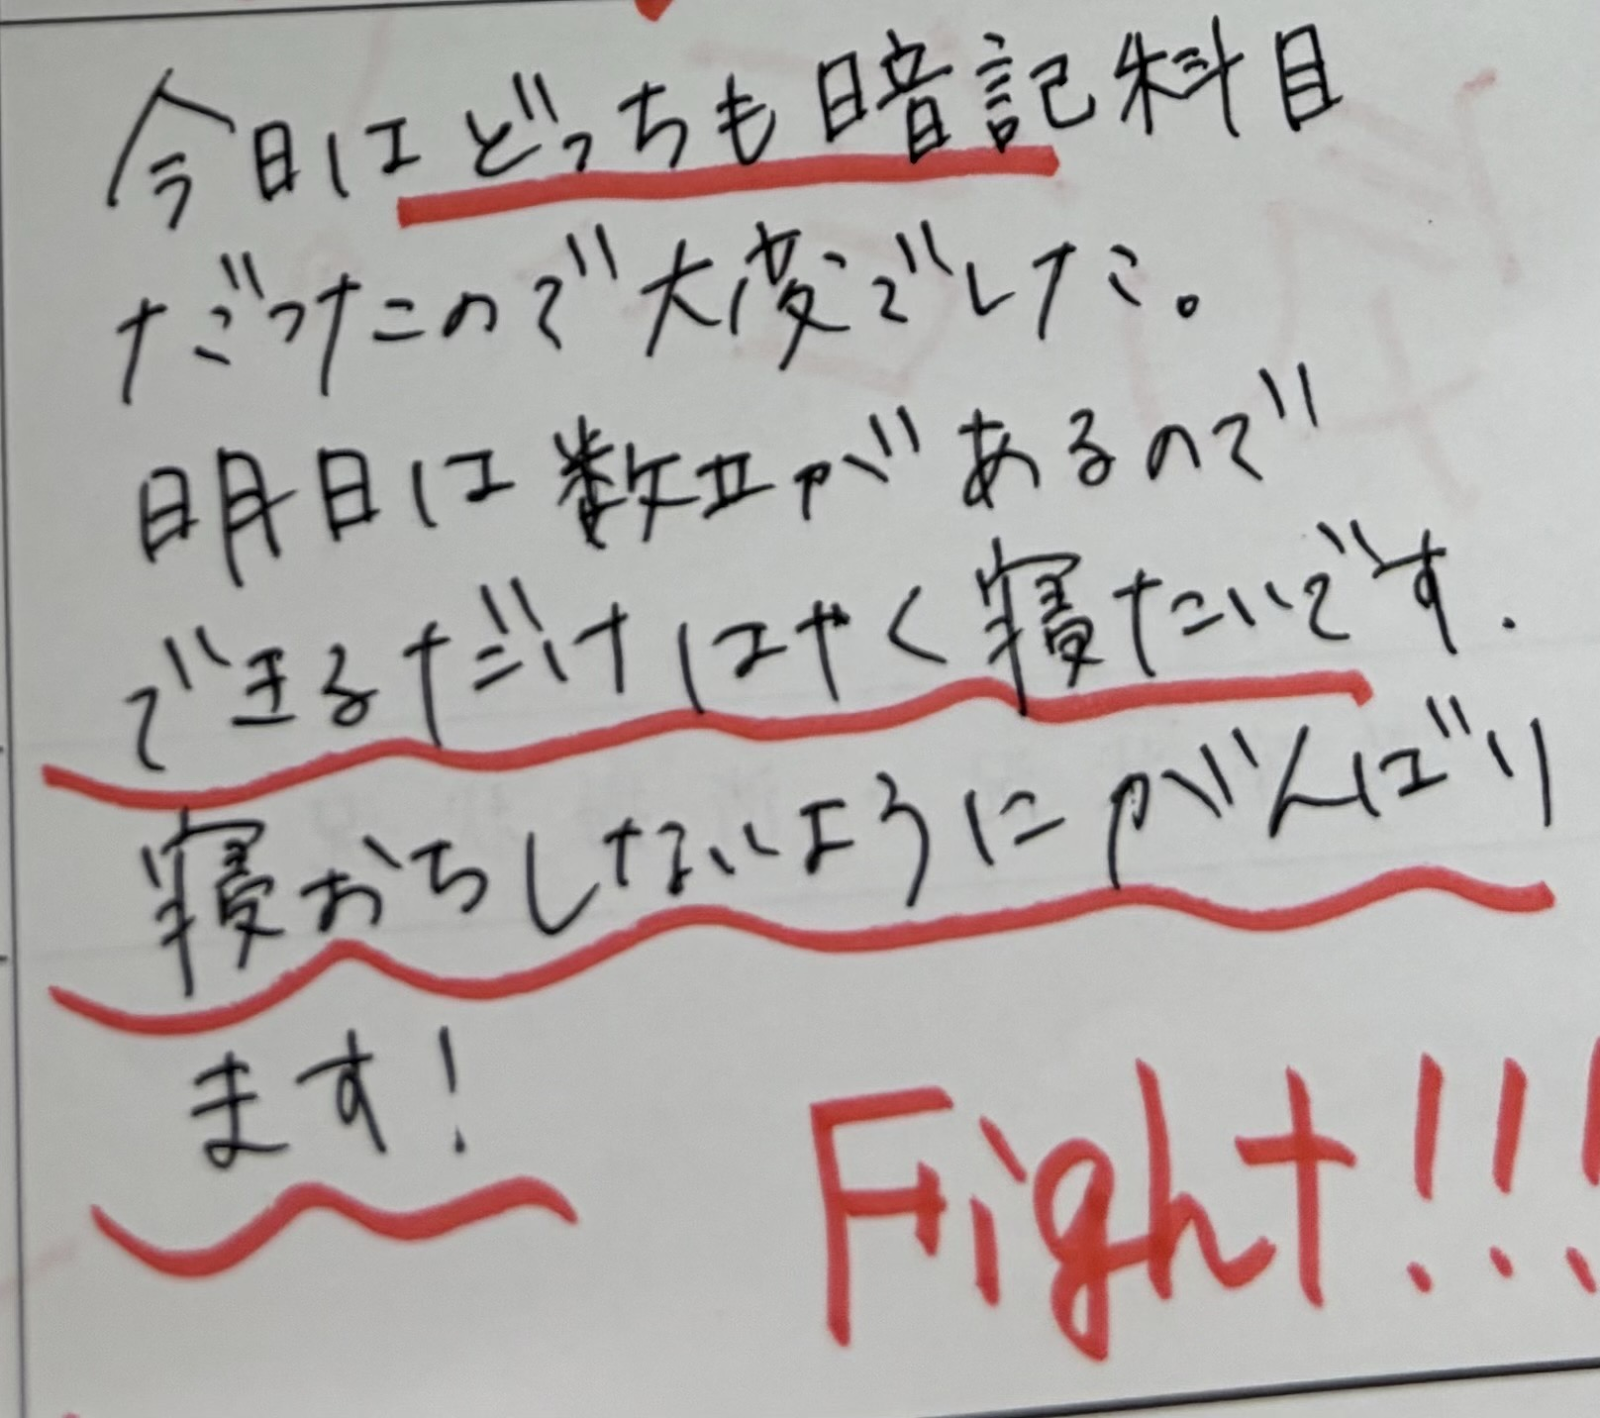 今日はどっちも暗記科目
だったので大変でした。
明日は数Ⅱがあるので
できるだけはやく寝たいです.
寝おちしないようにがんばり
ます!
Fight!!!